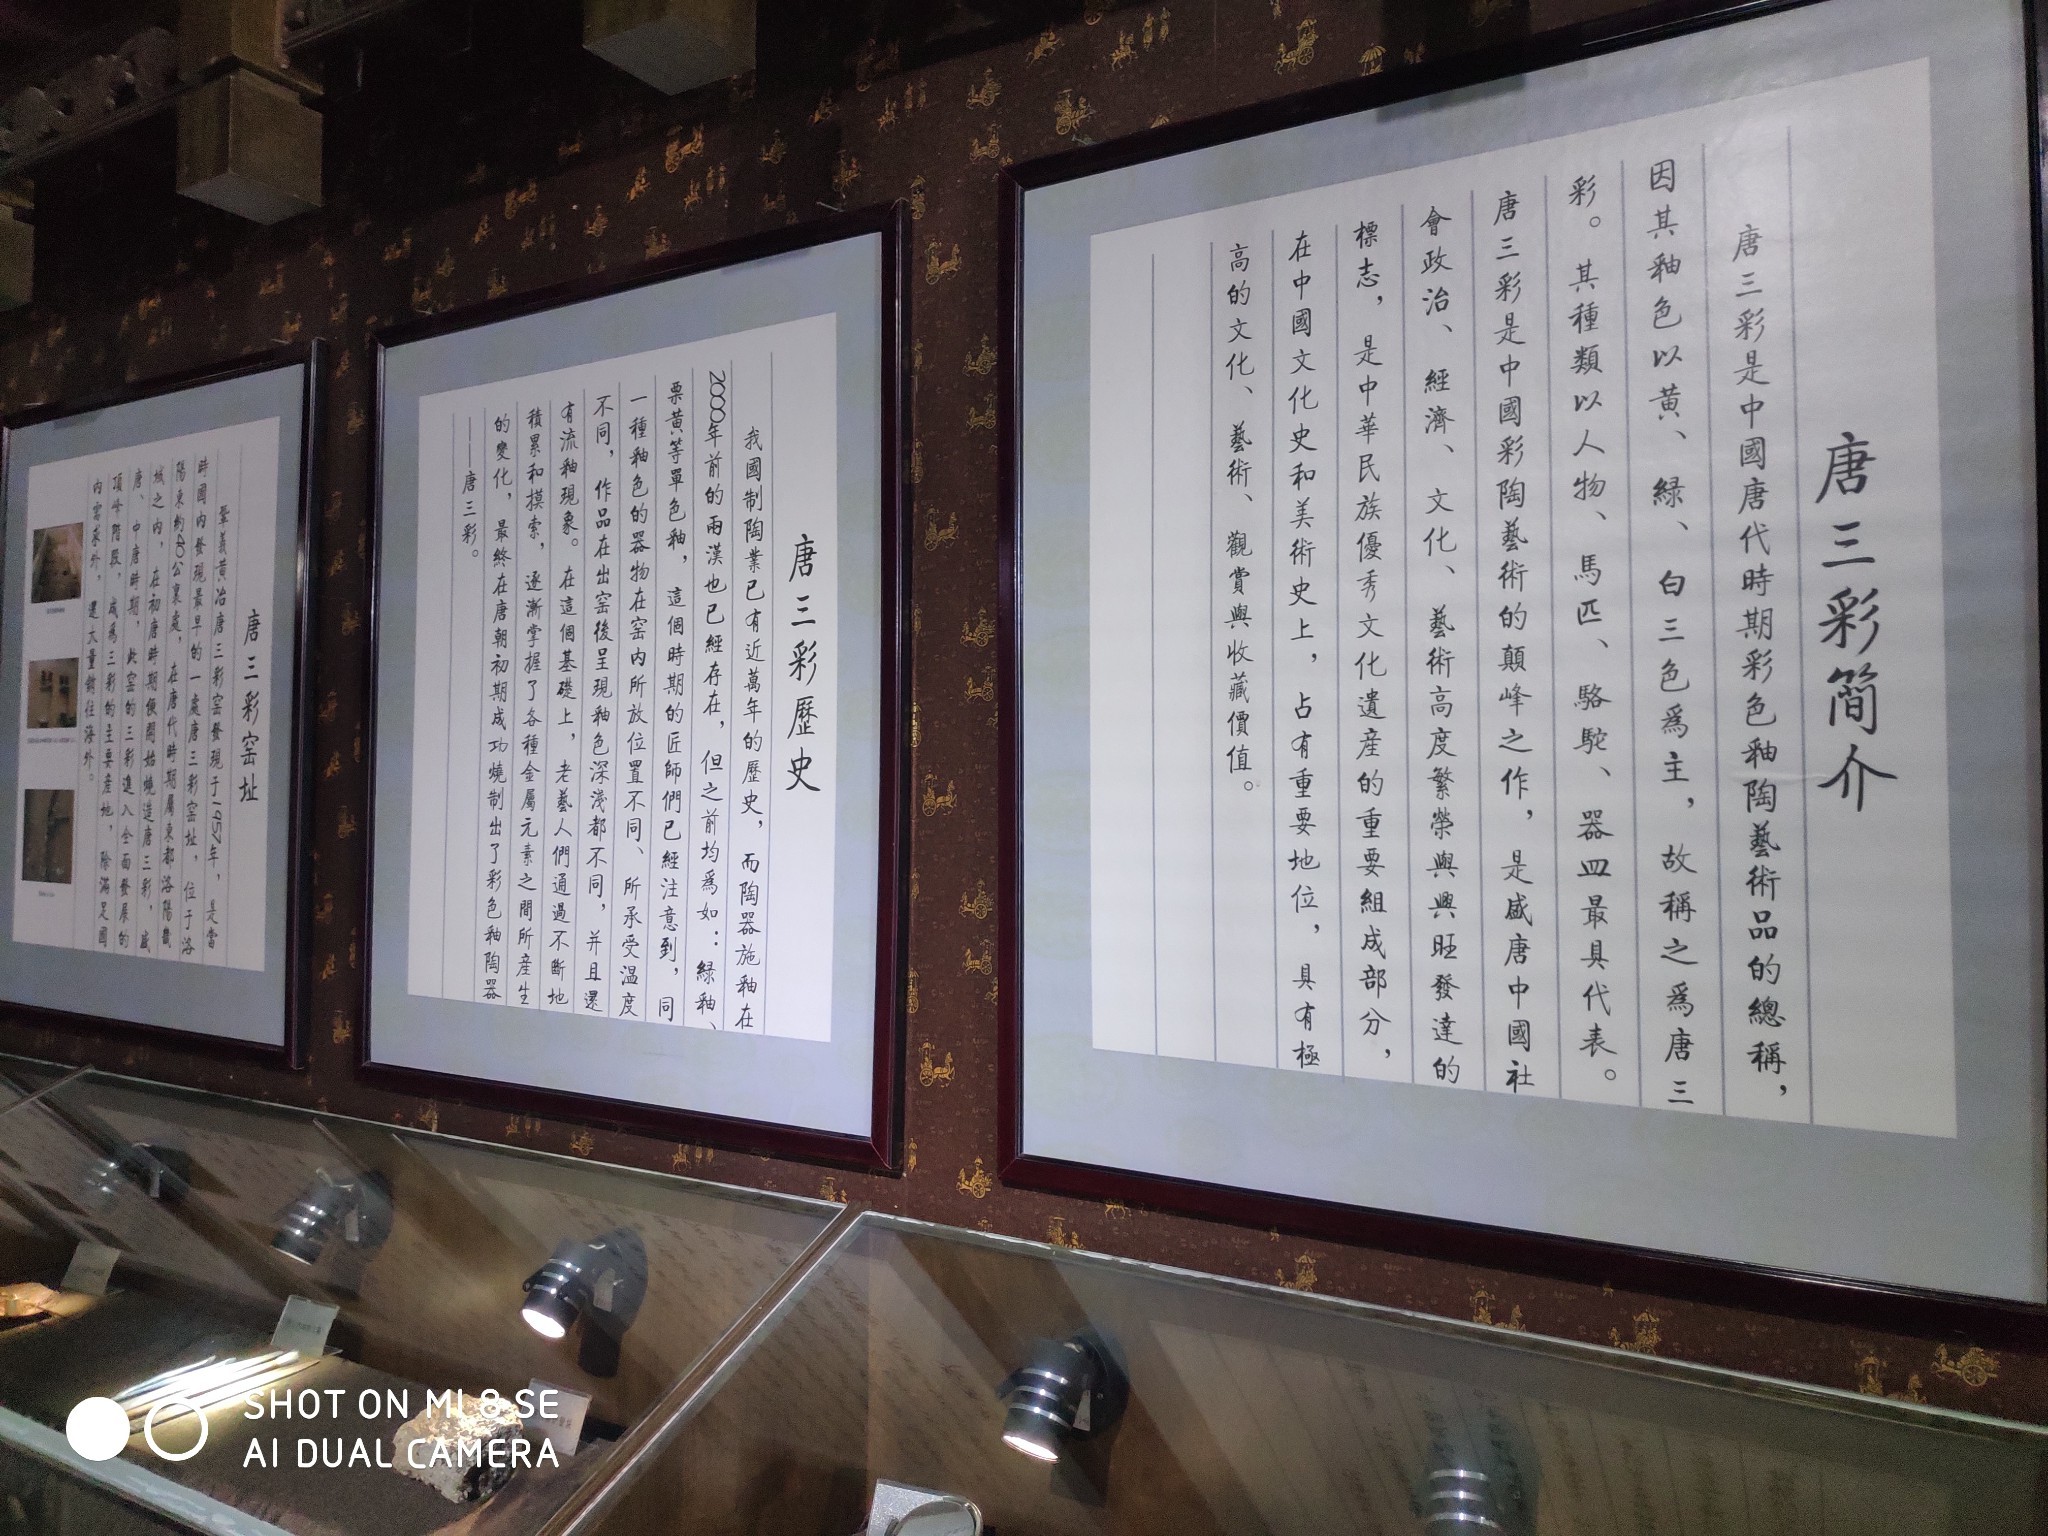 唐三彩簡介
唐三彩是中國唐代時期彩色釉陶藝術品的總稱，
因其釉色以黃、綠、白三色爲主，故稱之爲唐三
彩。其種類以人物、馬匹、駱駝、器皿最具代表。
唐三彩是中國彩陶藝術的顛峰之作，是盛唐中國社
會政治、經濟、文化、藝術高度繁榮與興旺發達的
標志，是中華民族優秀文化遺産的重要組成部分，
在中國文化史和美術史上，占有重要地位，具有極
高的文化、藝術、觀賞與收藏價值。
唐三彩歷史
我國制陶業已有近萬年的歷史，而陶器施釉在
2000年前的兩漢也已經存在，但之前均爲如：綠釉、
栗黃等單色釉，這個時期的匠師們已經注意到，同
一種釉色的器物在窑内所放位置不同、所承受温度
不同，作品在出窑後呈現釉色深淺都不同，并且還
有流釉現象。在這個基礎上，老藝人們通過不斷地
積累和摸索，逐漸掌握了各種金屬元素之間所産生
的變化，最終在唐朝初期成功燒制出了彩色釉陶器
——唐三彩。
唐三彩窑址
鞏義黃冶唐三彩窑發現于1957年，是當
時國内發現最早的一處唐三彩窑址，位于洛
陽東約40公裏處，在唐代時期屬東都洛陽畿
域之内，在初唐時期便開始燒造唐三彩，盛
唐、中唐時期，此窑的三彩進入全面發展的
頂峰階段，成爲三彩的主要産地，除滿足國
内需求外，還大量銷往海外。
SHOT ON MI 8 SE
AI DUAL CAMERA